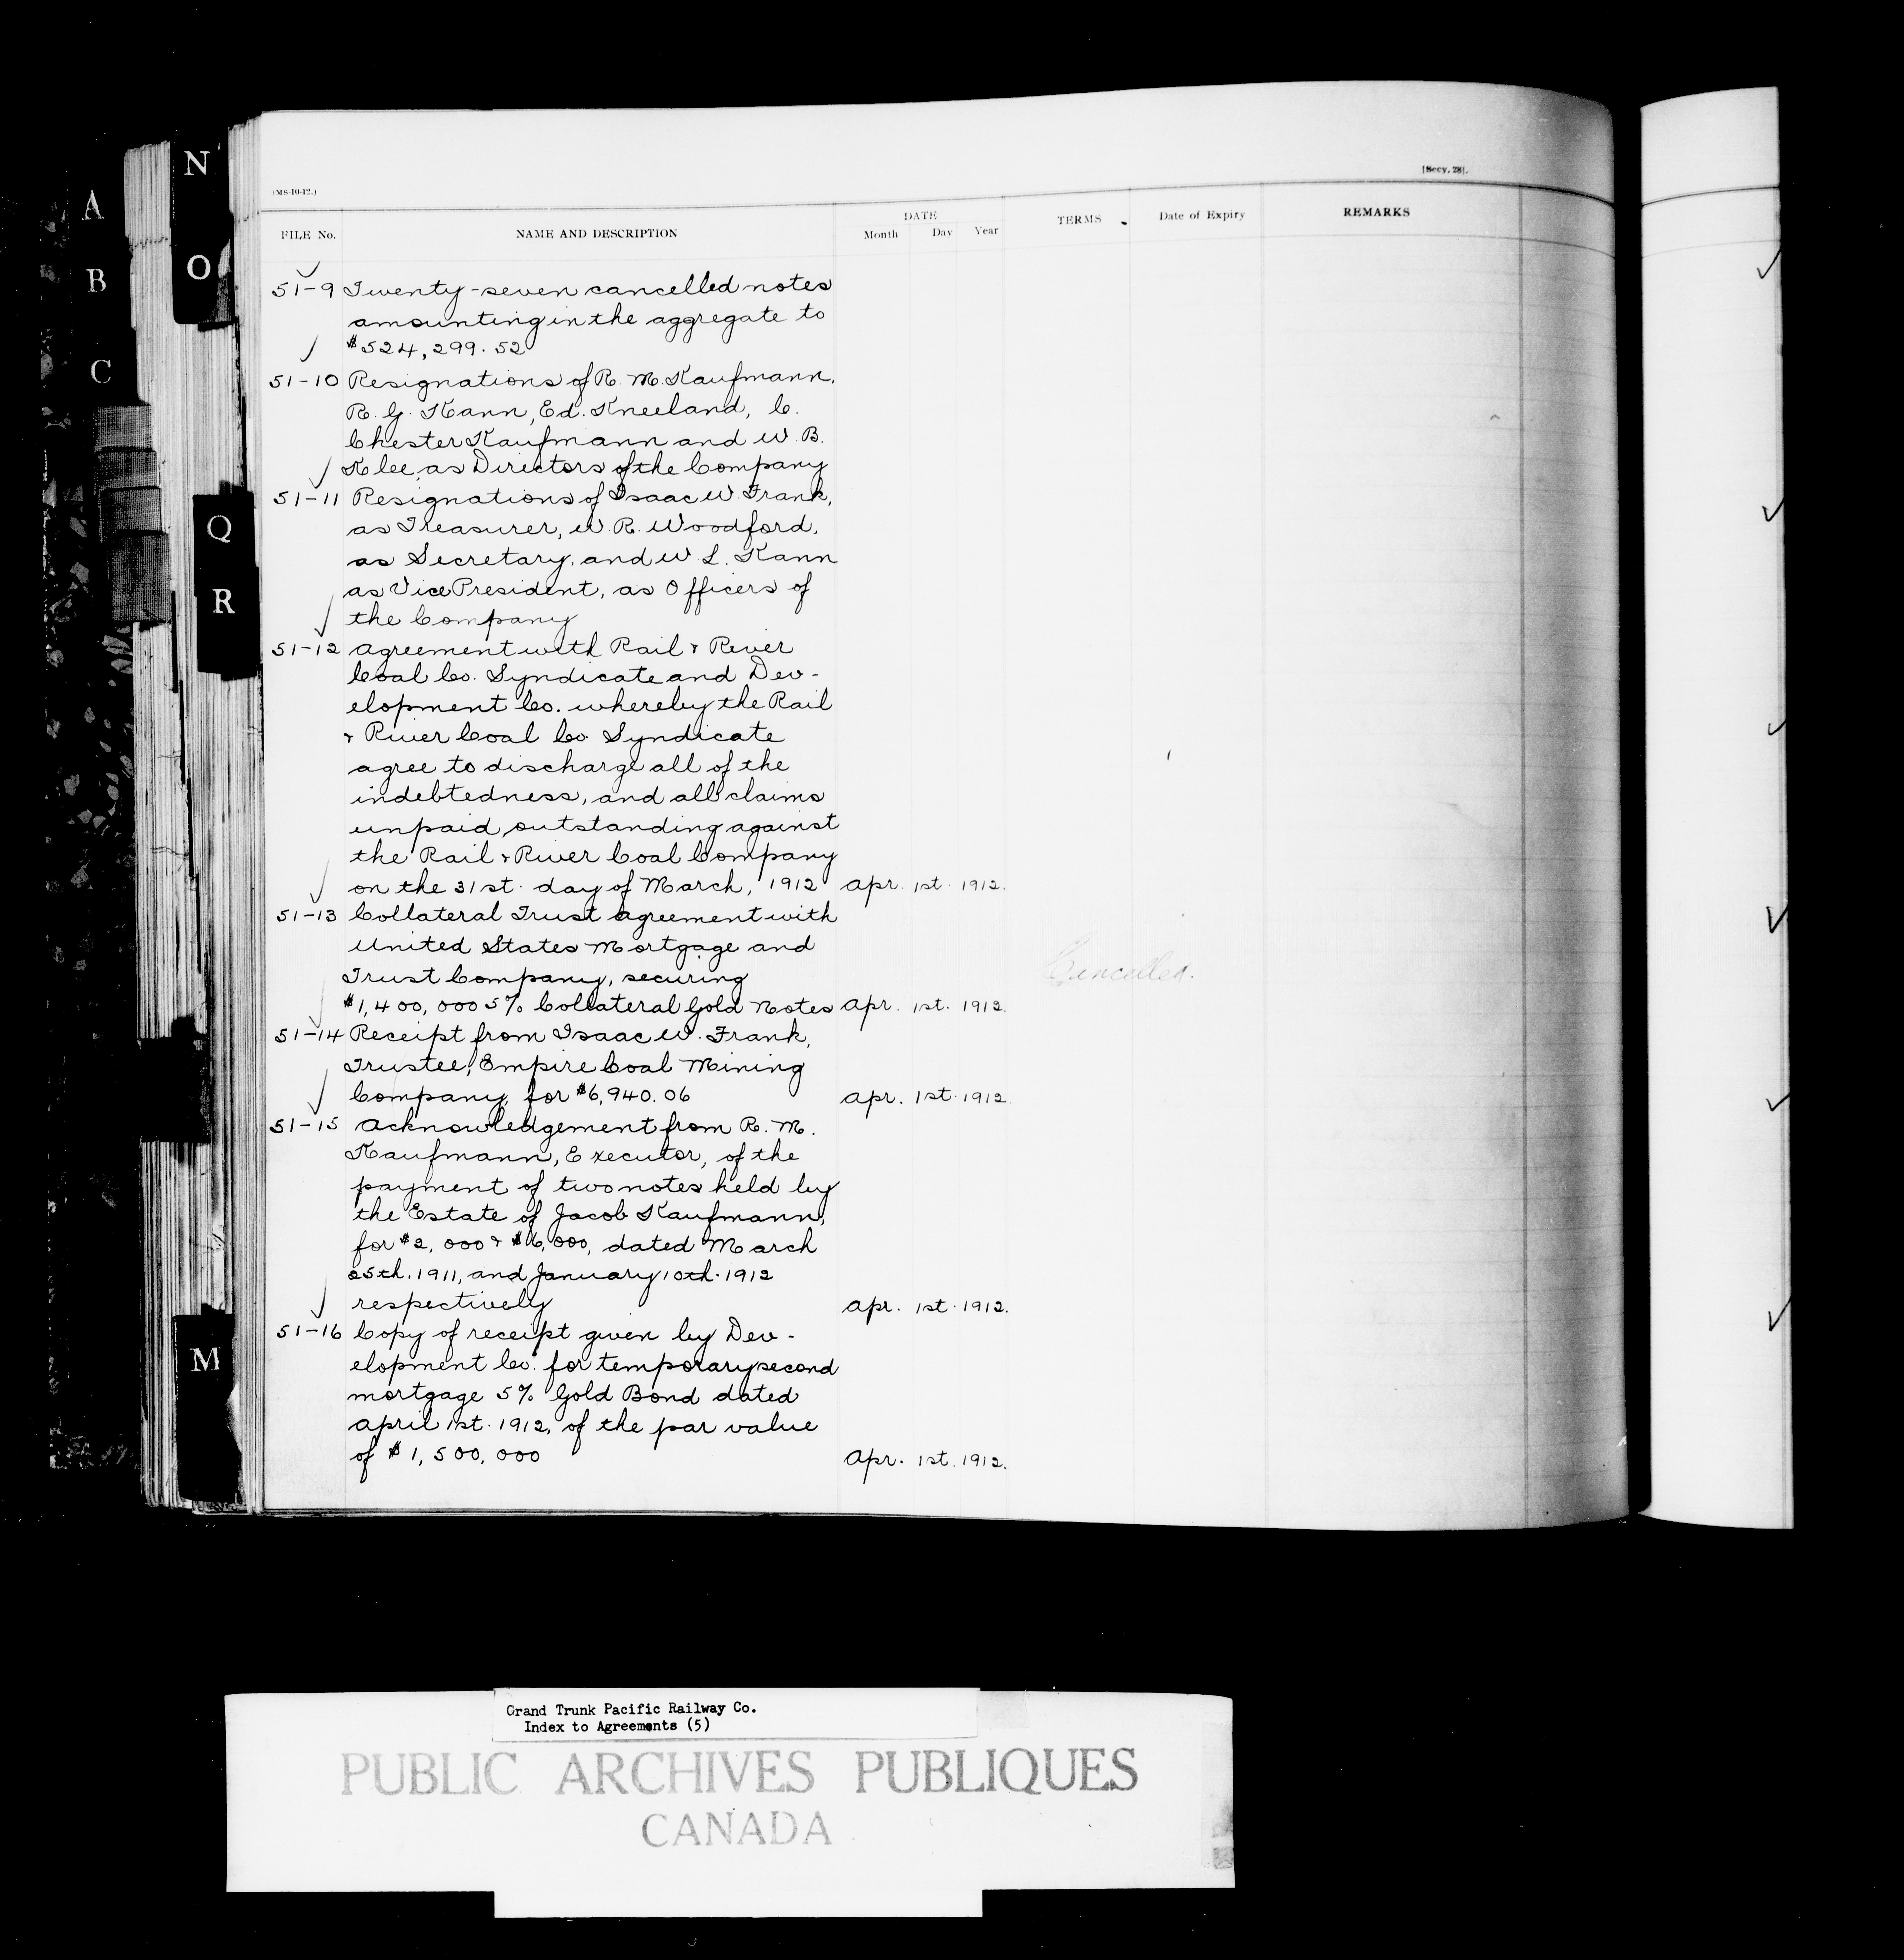 (MS-10-12.)
[Secy. 28].
FILE No.
NAME AND DESCRIPTION
DATE
Month Day Year
TERMS
Date of Expiry
REMARKS
51-9 Twenty-seven cancelled notes
amounting in the aggregate to
$524,299.52
51-10 Resignations of R. M. Kaufmann,
R. G. Kann, Ed. Kneeland, C.
Chester Kaufmann and W. B.
Klee, as Directors of the Company
51-11 Resignations of Isaac W. Frank,
as Treasurer, W. R. Woodford,
as Secretary, and W. L. Kann
as Vice President, as Officers of
the Company
51-12 Agreement with Rail & River
Coal Co. Syndicate and Dev-
elopment Co. whereby the Rail
& River Coal Co Syndicate
agree to discharge all of the
indebtedness, and all claims
unpaid, outstanding against
the Rail & River Coal Company
on the 31st. day of March, 1912 Apr. 1st. 1912.
51-13 Collateral Trust Agreement with
United States Mortgage and
Trust Company, securing
Cancelled.
$1,400,000 5% Collateral Gold Notes Apr. 1st. 1912.
51-14 Receipt from Isaac W. Frank,
Trustee, Empire Coal Mining
Company, for $6,940.06 Apr. 1st. 1912
51-15 Acknowledgement from R. M.
Kaufmann, Executor, of the
payment of two notes held by
the Estate of Jacob Kaufmann,
for $2,000 & $6,000, dated March
25th. 1911, and January 10th. 1912
respectively Apr. 1st. 1912.
51-16 Copy of receipt given by Dev-
elopment Co. for temporary second
mortgage 5% Gold Bond dated
April 1st. 1912, of the par value
of $1,500,000 Apr. 1st. 1912.
A
B
C
N
O
Q
R
M
Grand Trunk Pacific Railway Co.
Index to Agreements (5)
PUBLIC ARCHIVES PUBLIQUES
CANADA